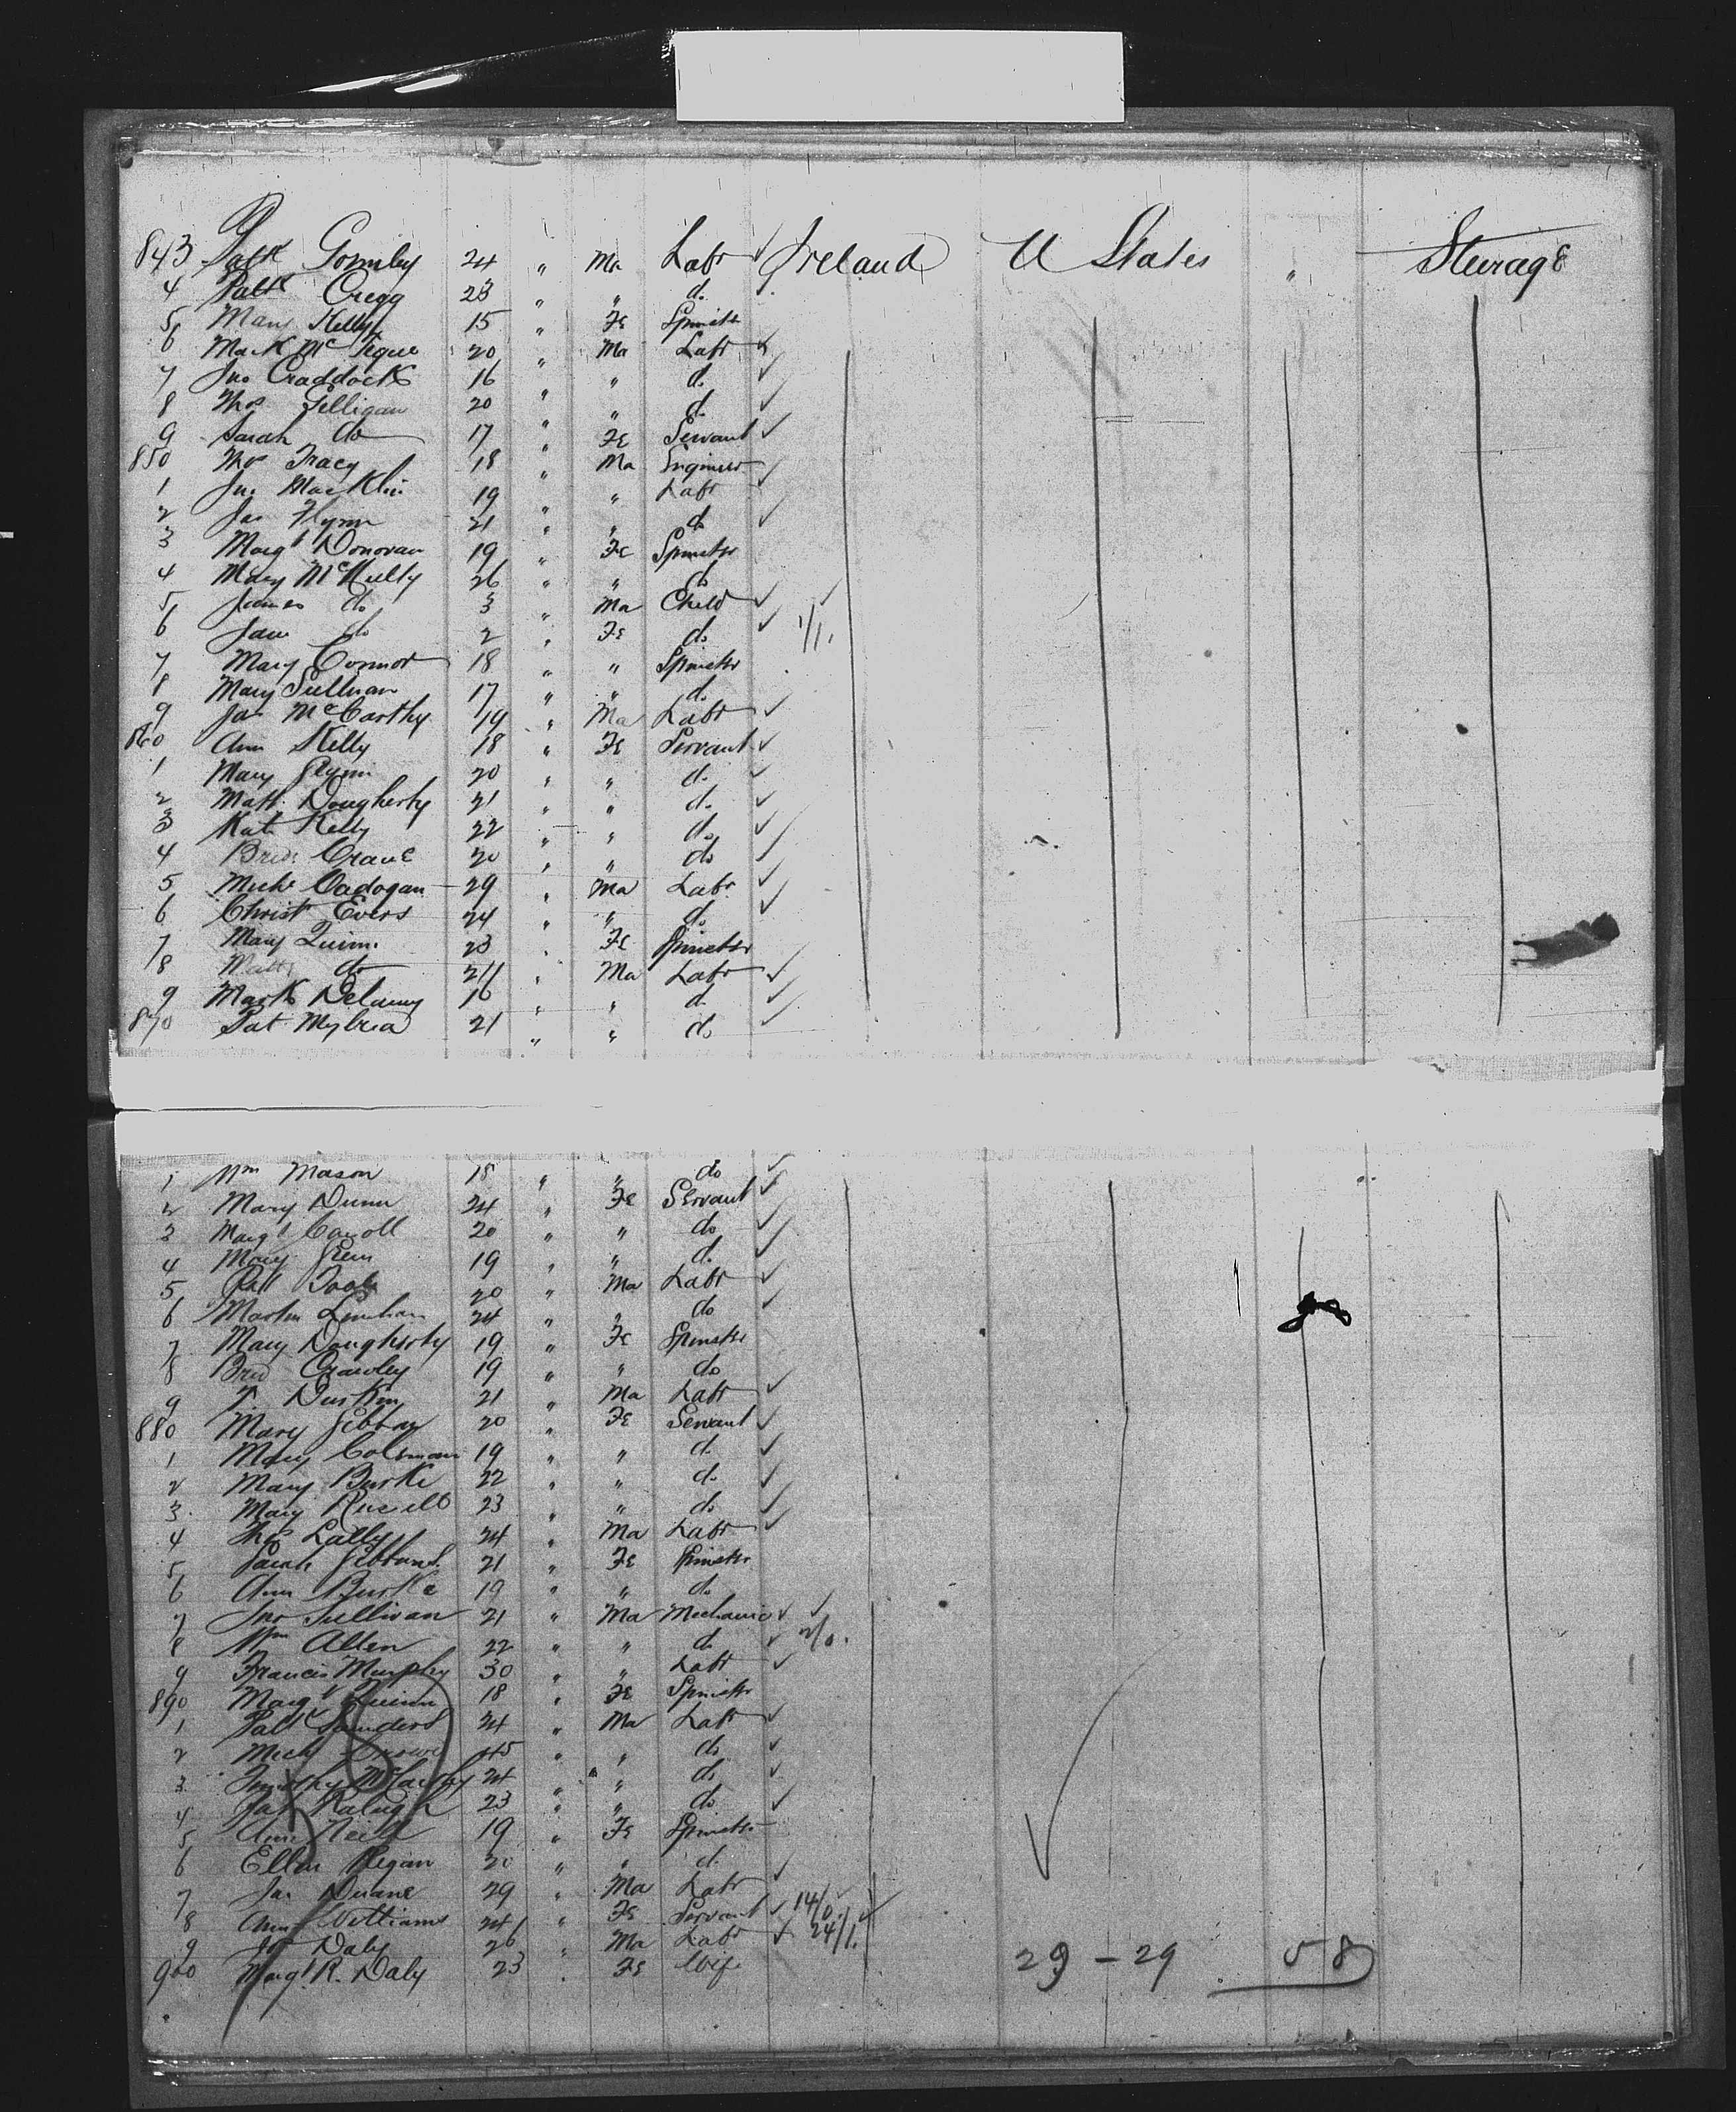 843 Patk Gormley 24 " Ma Labr ✓ Ireland U States " Steerage
4 Patk Cregg 23 " " do
5 Mary Kelly 15 " Fe Spinster
6 Mark McTigue 20 " Ma Labr ✓
7 Jno Craddock 16 " " do ✓
8 Thos Gilligan 20 " " do ✓
9 Sarah do 17 " Fe Servant ✓
850 Thos Tracy 18 " Ma Engineer ✓
1 Jno Macklin 19 " " Labr ✓
2 Jas Flynn 21 " " do ✓
3 Margt Donovan 19 " Fe Spinster
4 Mary McNulty 26 " " do
5 James do 3 " Ma Child ✓ ✓
6 Jane do 2 " Fe do ✓ 1/1.
7 Mary Connor 18 " " Spinster
8 Mary Sullivan 17 " " do
9 Jas McCarthy 19 " Ma Labr ✓
860 Ann Kelly 18 " Fe Servant ✓
1 Mary Glynn 20 " " do ✓
2 Matt. Dougherty 21 " " do ✓
3 Kate Kelly 22 " " do ✓
4 Brid Crane 20 " " do ✓
5 Michl Cadogan 29 " Ma Labr ✓
6 Christ Evers 24 " " do ✓
7 Mary Quinn 23 " Fe Spinster
8 Matt do 21 " Ma Labr ✓
9 Mark Delaney 16 " " do ✓
870 Pat 21 " " do ✓
1 Wm Mason 18 " " do ✓
2 Mary Dunn 24 " Fe Servant ✓
3 Margt Carroll 20 " " do ✓
4 Mary 19 " " do ✓
5 Patt Toole 20 " Ma Labr ✓
6 Martin Linehan 24 " " do ✓
7 Mary Dougherty 19 " Fe Spinster
8 Brid Crawley 19 " " do
9 T. Durkin 21 " Ma Labr ✓
880 Mary Gibbon 20 " Fe Servant ✓
1 Mary Coleman 19 " " do ✓
2 Mary Burke 22 " " do ✓
3 Mary Russell 23 " " do ✓
4 Thos Lally 24 " Ma Labr ✓
5 Sarah Gibbons 21 " Fe Spinster
6 Ann Burke 19 " " do
7 Jno Sullivan 21 " Ma Mechanic ✓ ✓
8 Wm Allen 22 " " do ✓ 2/0.
9 Francis Murphy 30 " " Labr ✓
890 Margt Quinn 18 " Fe Spinster
1 Patt Saunders 24 " Ma Labr ✓
2 Michl 45 " " do ✓
3 Timothy McCarthy 24 " " do ✓
4 Jas Raleigh 23 " " do ✓
5 Ann Neill 19 " Fe Spinster
6 Ellen Regan 20 " " do
7 Jas Duane 29 " Ma Labr ✓
8 Ann Williams 24 " Fe Servant ✓ 14/0. ✓
9 Jos Daly 26 " Ma Labr ✓ 24/1.
900 Margt R. Daly 23 " Fe Wife 29 - 29 58